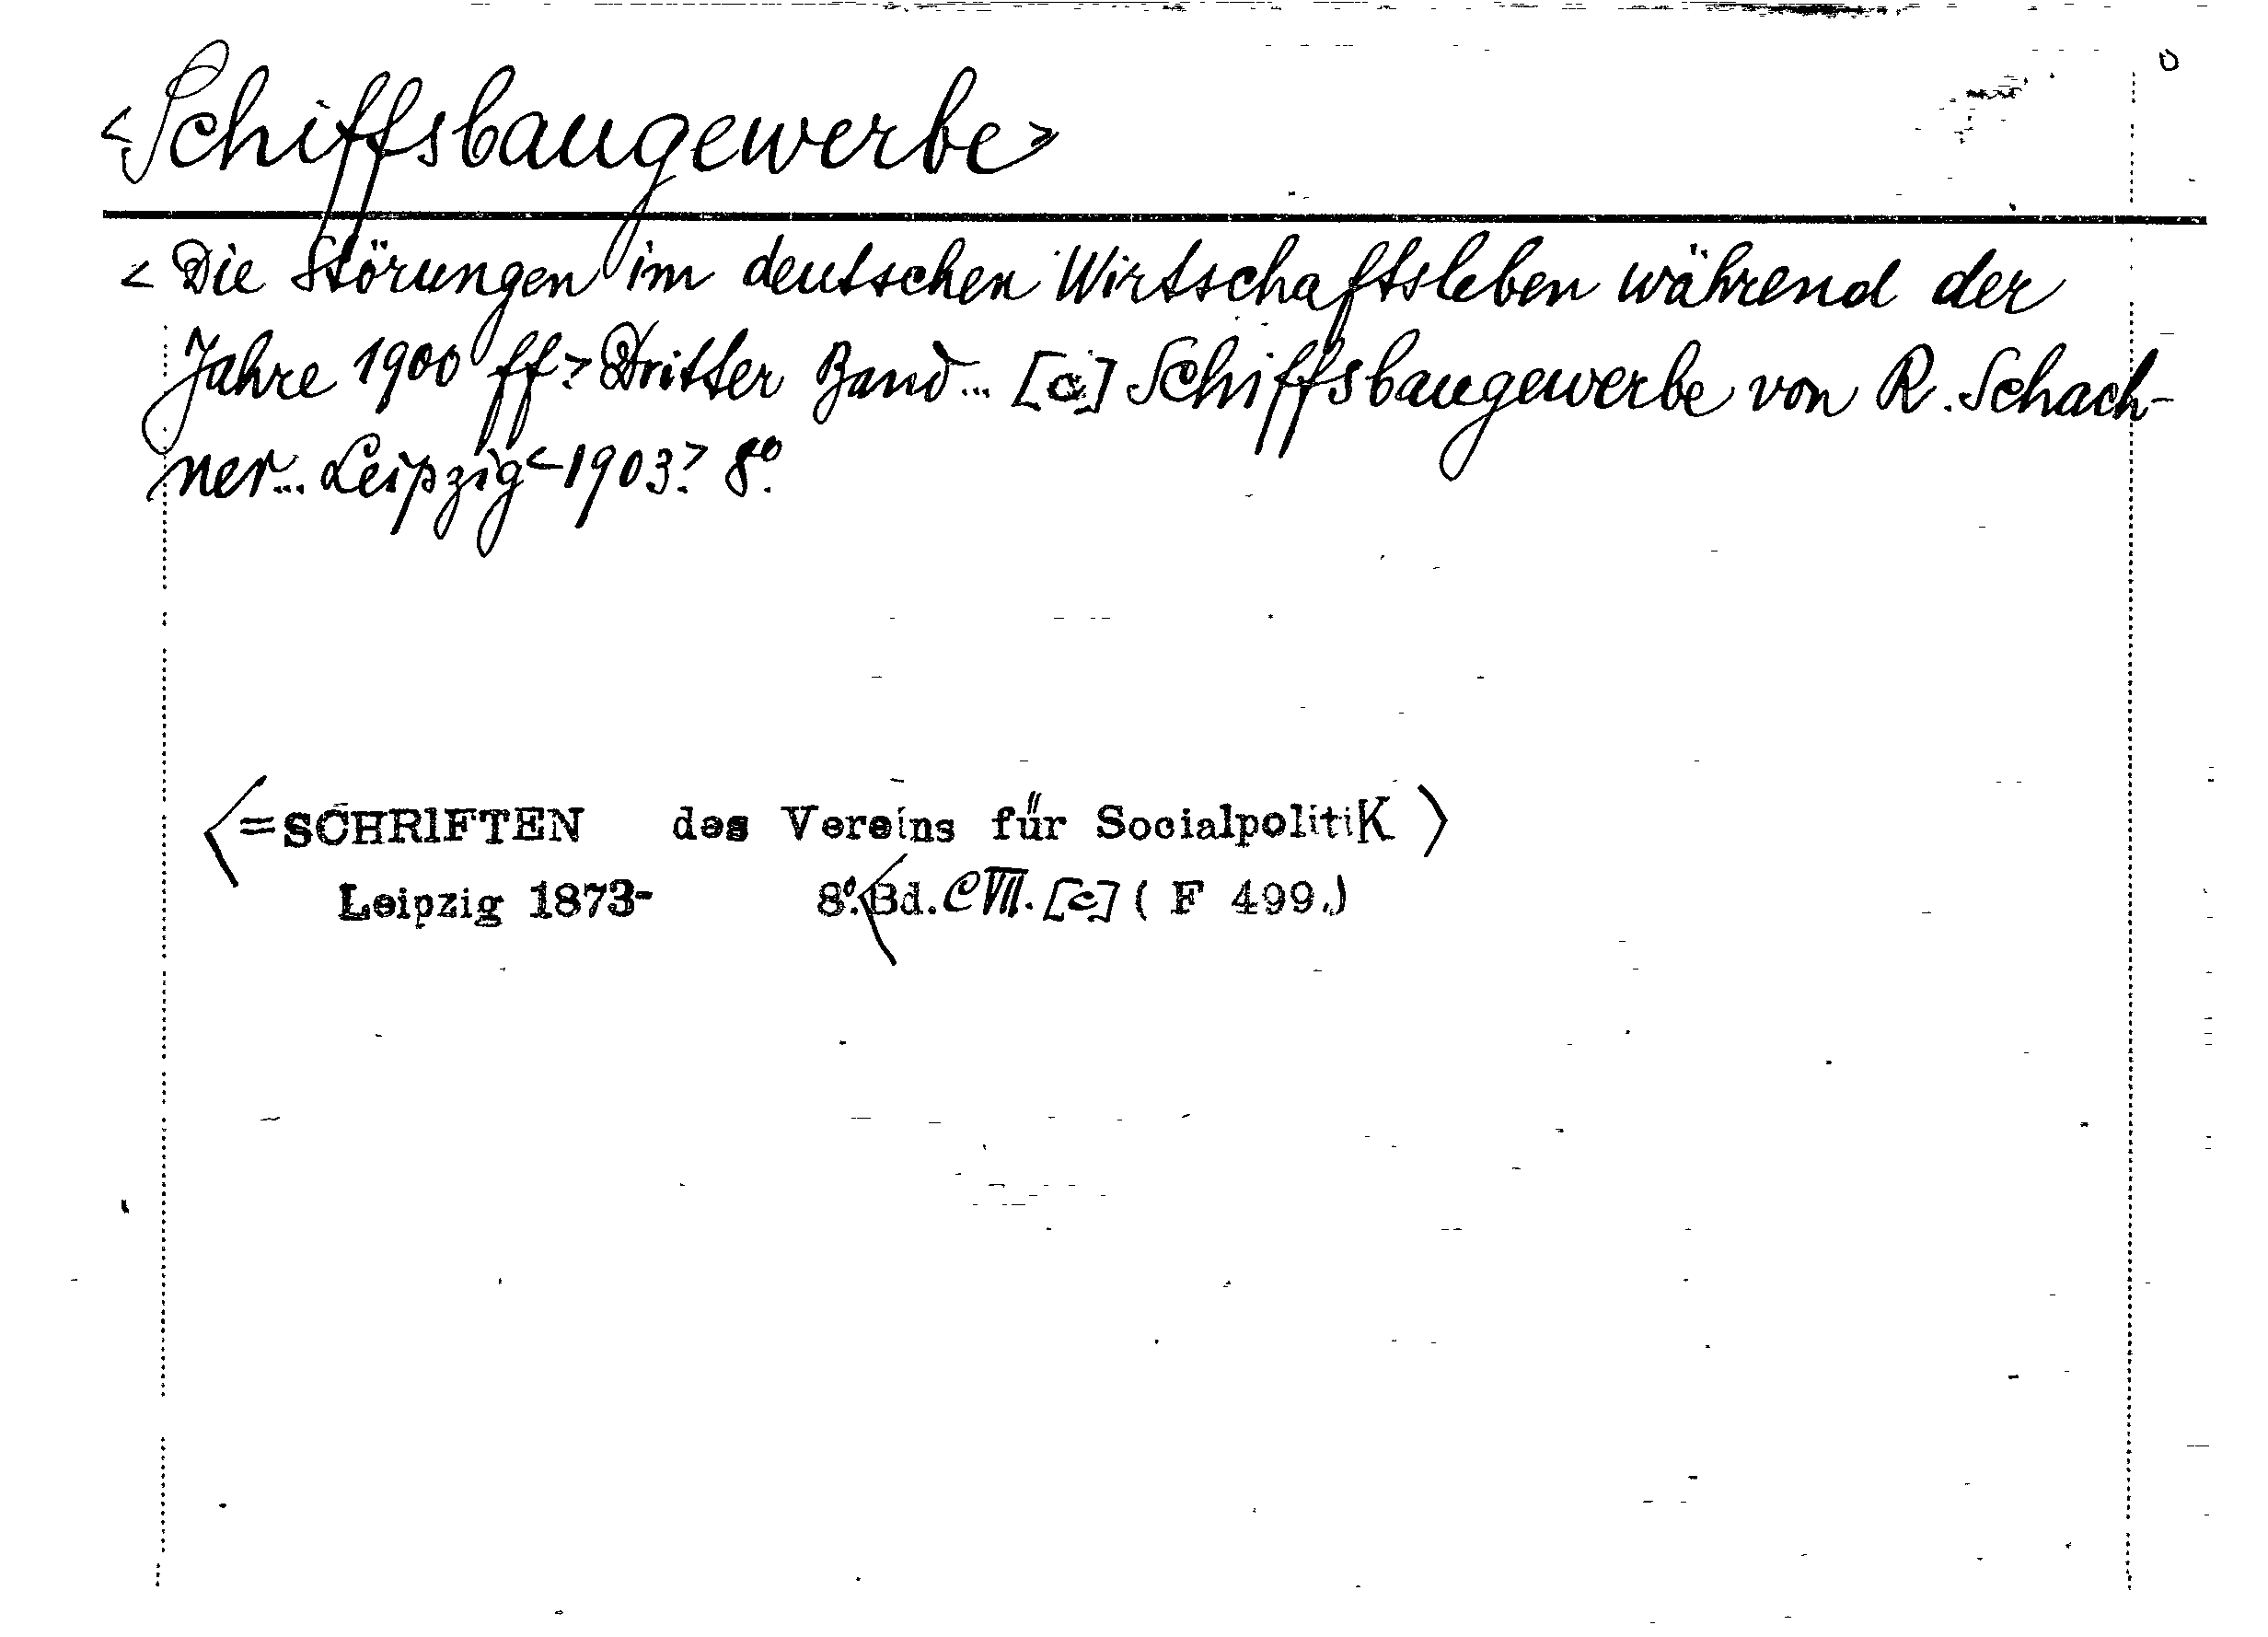 <Schiffsbaugewerbe>
< Die Störungen im deutschen Wirtschaftsleben während der
Jahre 1900 ff.> Dritter Band... [c] Schiffsbaugewerbe von R. Schach-
ner... Leipzig <1903.> 8º.
<=SCHRIFTEN des Vereins für SocialpolitiK>
Leipzig 1873- 8º.<Bd. CVII. [c] ( F 499.)